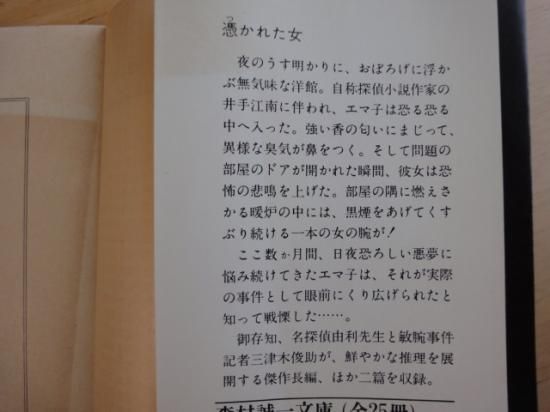 つ
憑かれた女
夜のうす明かりに、おぼろげに浮か
ぶ無気味な洋館。自称探偵小説作家の
井手江南に伴われ、エマ子は恐る恐る
中へ入った。強い香の匂いにまじって、
異様な臭気が鼻をつく。そして問題の
部屋のドアが開かれた瞬間、彼女は恐
怖の悲鳴を上げた。部屋の隅に燃えさ
かる暖炉の中には、黒煙をあげてくす
ぶり続ける一本の女の腕が!
ここ数か月間、日夜恐ろしい悪夢に
悩み続けてきたエマ子は、それが実際
の事件として眼前にくり広げられたと
知って戦慄した……。
御存知、名探偵由利先生と敏腕事件
記者三津木俊助が、鮮やかな推理を展
開する傑作長編、ほか二篇を収録。
森村誠一文庫(全25冊)